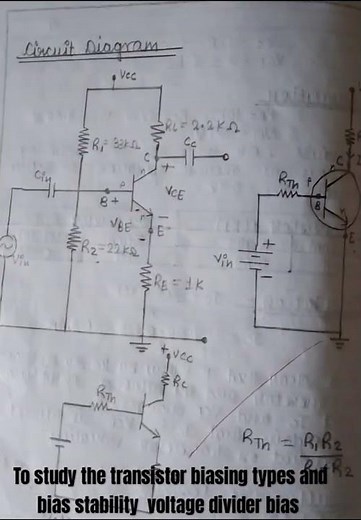 Circuit Diagram
Vcc
R1 = 33KΩ
RC = 2.2KΩ
CC
C
+
Cin
B +
VCE
VBE
–
E
Vin
R2 = 22KΩ
RE = 1K
RTh
B
E
Vin
+
–
+Vcc
RC
RTh
RTh = R1R2
R2
To study the transistor biasing types and
bias stability voltage divider bias